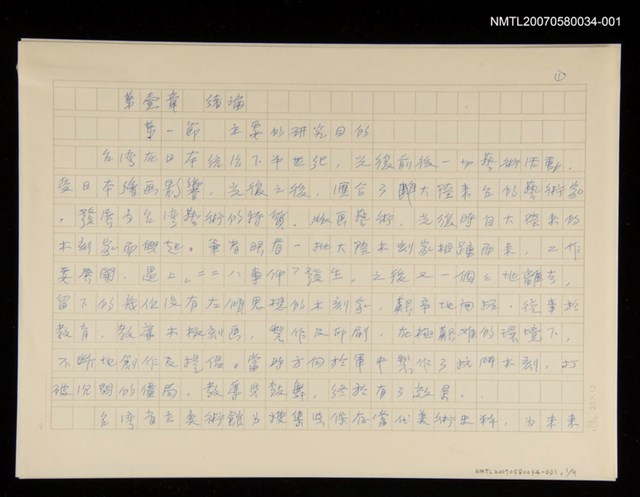 NMTL20070580034-001
①
第壹章 緒論
第一節 主要的研究目的
台湾在日本統治下半世紀，光復前後一切藝術活動，
受日本繪画影響，光復之後，匯合了大陸來台的藝術家
，發展了台湾藝術的特質。版画藝術，光復時自大陸來的
木刻家而興起。筆者眼看一批大陸木刻家相踵而來，工作
要展開，遇上「二二八事件」發生，之後又一個個地離去，
留下的幾位沒有左傾思想的木刻家，艱辛地，從事於
教育，教導木板刻画，製作及印刷，在極艱难的環境下，
不断地創作及提倡。當時方向於軍中製作了戰鬥木刻，打
破沉悶的僵局。教導與鼓舞，終於有了效果。
台湾省立美術館為搜集與保存當代美術史料，为未來
NMTL20070580034-001, 1/9